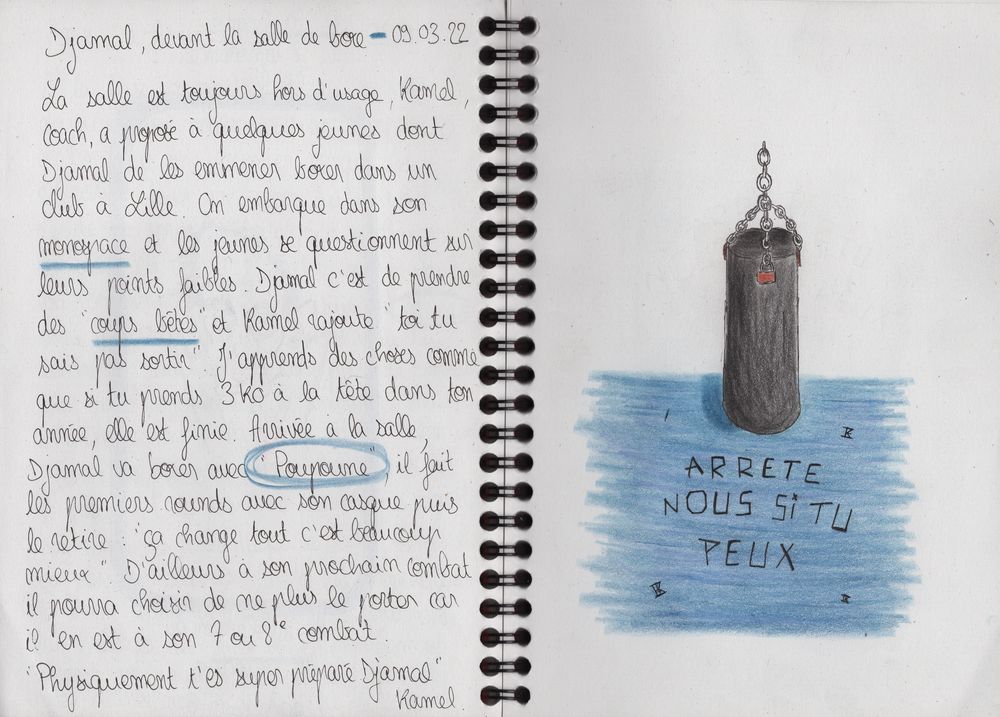 Djamal, devant la salle de boxe - 09.03.22
La salle est toujours hors d'usage, Kamel,
coach, a proposé à quelques jeunes dont
Djamal de les emmener boxer dans un
club à Lille. On embarque dans son
monospace et les jeunes se questionnent sur
leurs points faibles. Djamal c'est de prendre
des "coups bêtes" et Kamel rajoute "toi tu
sais pas sortir". J'apprends des choses comme
que si tu prends 3 KO à la tête dans ton
année, elle est finie. Arrivée à la salle,
Djamal va boxer avec "Poupoune", il fait
les premiers rounds avec son casque puis
le retire : "ça change tout c'est beaucoup
mieux". D'ailleurs à son prochain combat
il pourra choisir de ne plus le porter car
il en est à son 7 ou 8e combat.
"Physiquement t'es super préparé Djamal"
Kamel.
ARRETE
NOUS Si TU
PEUX